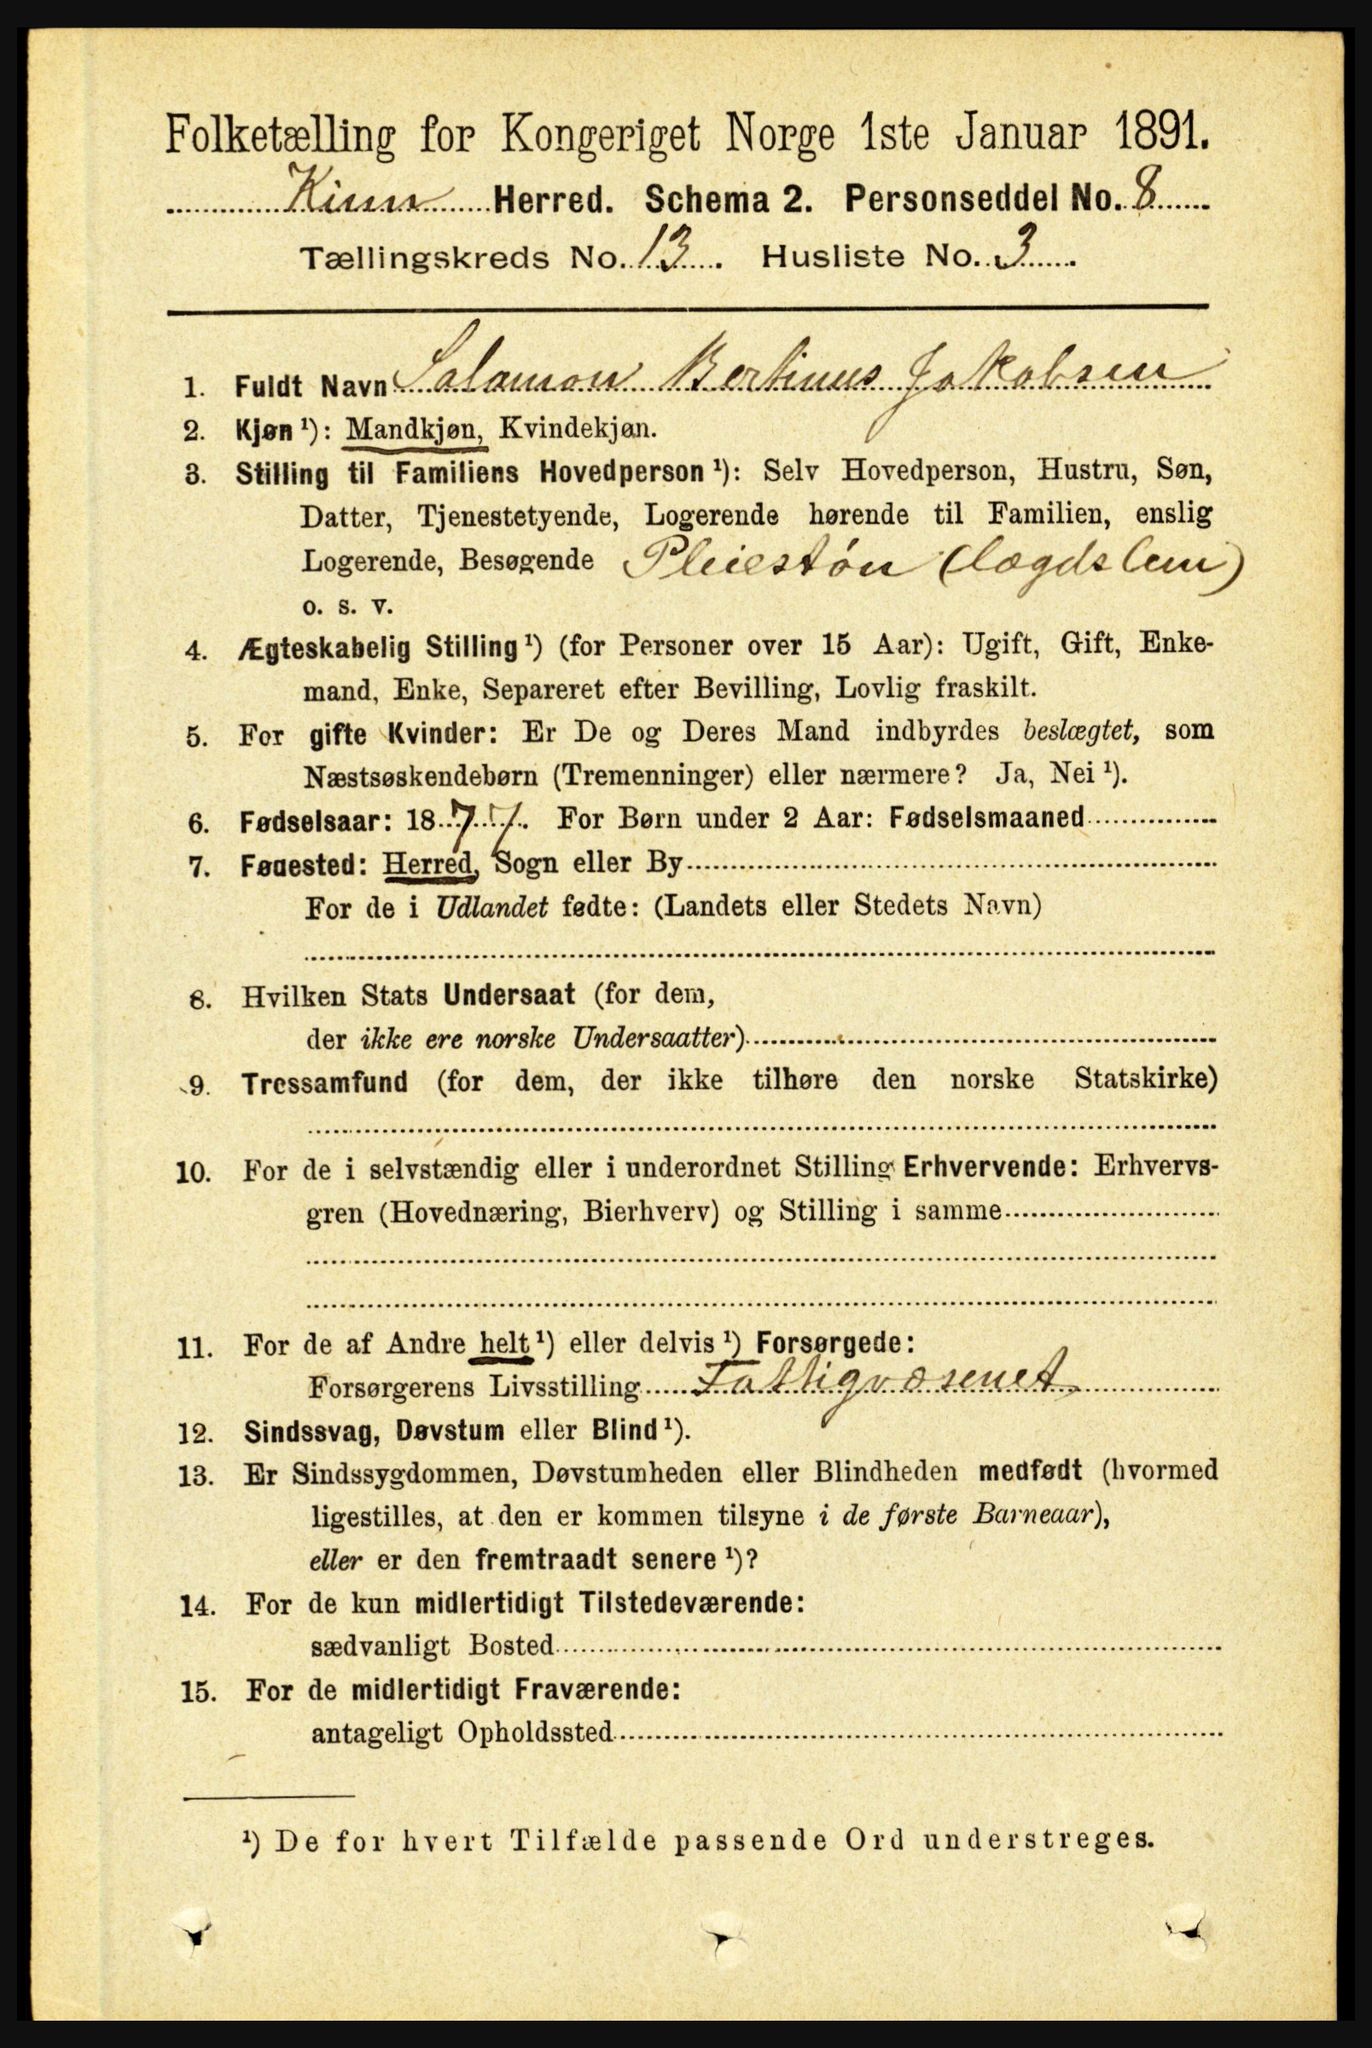 Folketælling for Kongeriget Norge 1ste Januar 1891.
Kinn Herred. Schema 2. Personseddel No. 8
Tællingskreds No. 13. Husliste No. 3.
1. Fuldt Navn Salamon Bertinus Jakobsen
2. Kjøn ¹): Mandkjøn, Kvindekjøn.
3. Stilling til Familiens Hovedperson ¹): Selv Hovedperson, Hustru, Søn,
Datter, Tjenestetyende, Logerende hørende til Familien, enslig
Logerende, Besøgende Pleiesøn (lægdslem)
o. s. v.
4. Ægteskabelig Stilling ¹) (for Personer over 15 Aar): Ugift, Gift, Enke-
mand, Enke, Separeret efter Bevilling, Lovlig fraskilt.
5. For gifte Kvinder: Er De og Deres Mand indbyrdes beslægtet, som
Næstsøskendebørn (Tremenninger) eller nærmere? Ja, Nei ¹).
6. Fødselsaar: 1877. For Børn under 2 Aar: Fødselsmaaned
7. Fødested: Herred, Sogn eller By
For de i Udlandet fødte: (Landets eller Stedets Navn)
8. Hvilken Stats Undersaat (for dem,
der ikke ere norske Undersaatter)
9. Trossamfund (for dem, der ikke tilhøre den norske Statskirke)
10. For de i selvstændig eller i underordnet Stilling Erhvervende: Erhvervs-
gren (Hovednæring, Bierhverv) og Stilling i samme
11. For de af Andre helt ¹) eller delvis ¹) Forsørgede:
Forsørgerens Livsstilling Fattigvæsenet
12. Sindssvag, Døvstum eller Blind ¹).
13. Er Sindssygdommen, Døvstumheden eller Blindheden medfødt (hvormed
ligestilles, at den er kommen tilsyne i de første Barneaar),
eller er den fremtraadt senere ¹)?
14. For de kun midlertidigt Tilstedeværende:
sædvanligt Bosted
15. For de midlertidigt Fraværende:
antageligt Opholdssted
¹) De for hvert Tilfælde passende Ord understreges.